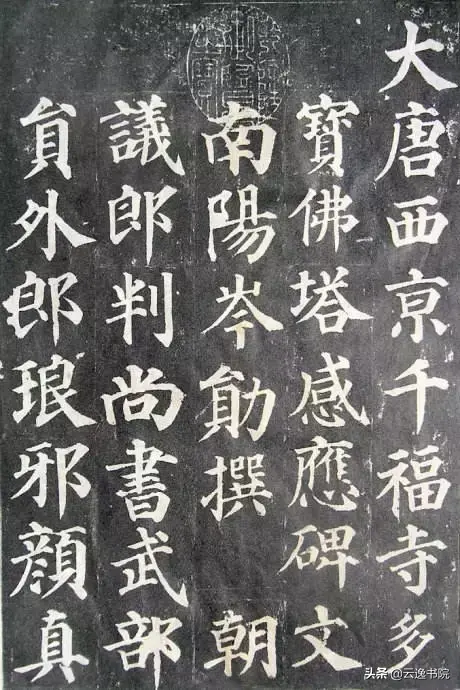 大唐西京千福寺多
寶佛塔感應碑文
南陽岑勛撰 朝
議郎判尚書武部
員外郎琅邪顏真
头条 @云逸书院